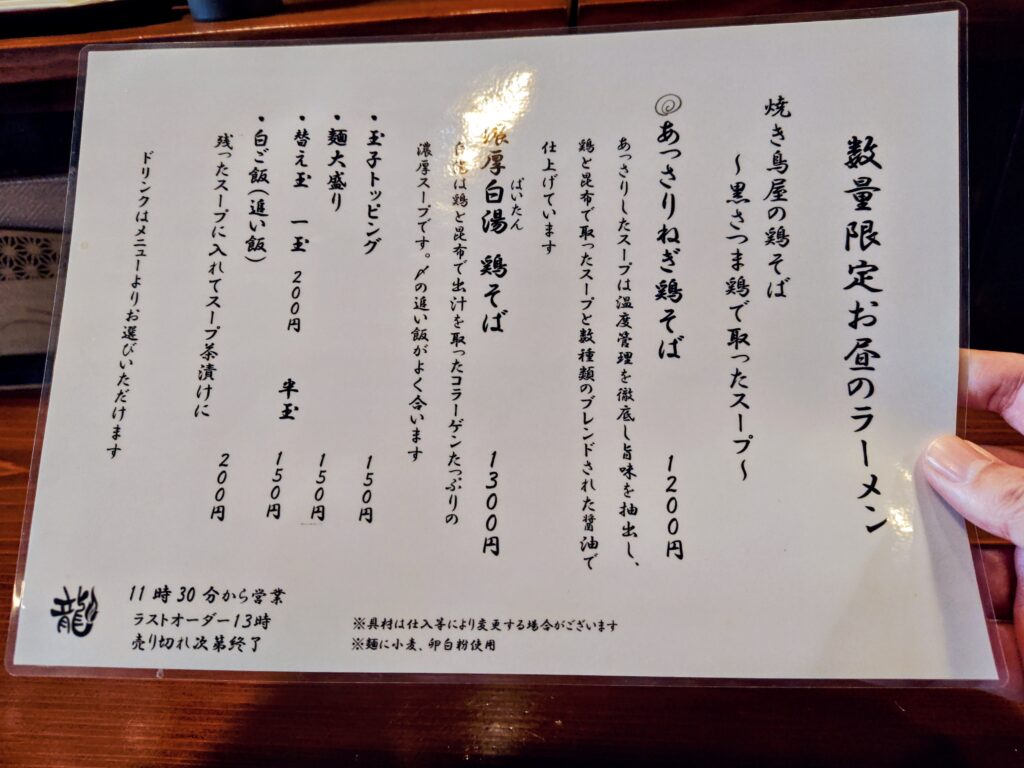 数量限定お昼のラーメン
焼き鳥屋の鶏そば
～黒さつま鶏で取ったスープ～
あっさりねぎ鶏そば 1200円
あっさりしたスープは温度管理を徹底し旨味を抽出し、
鶏と昆布で取ったスープと数種類のブレンドされた醤油で
仕上げています
濃厚白湯 鶏そば 1300円
ぱいたん
は鶏と昆布で出汁を取ったコラーゲンたっぷりの
濃厚スープです。〆の追い飯がよく合います
・玉子トッピング 150円
・麺大盛り 150円
・替え玉 一玉 200円 半玉 150円
・白ご飯(追い飯)
残ったスープに入れてスープ茶漬けに 200円
ドリンクはメニューよりお選びいただけます
龍
11時30分から営業
ラストオーダー13時
売り切れ次第終了
※具材は仕入等により変更する場合がございます
※麺に小麦、卵白粉使用